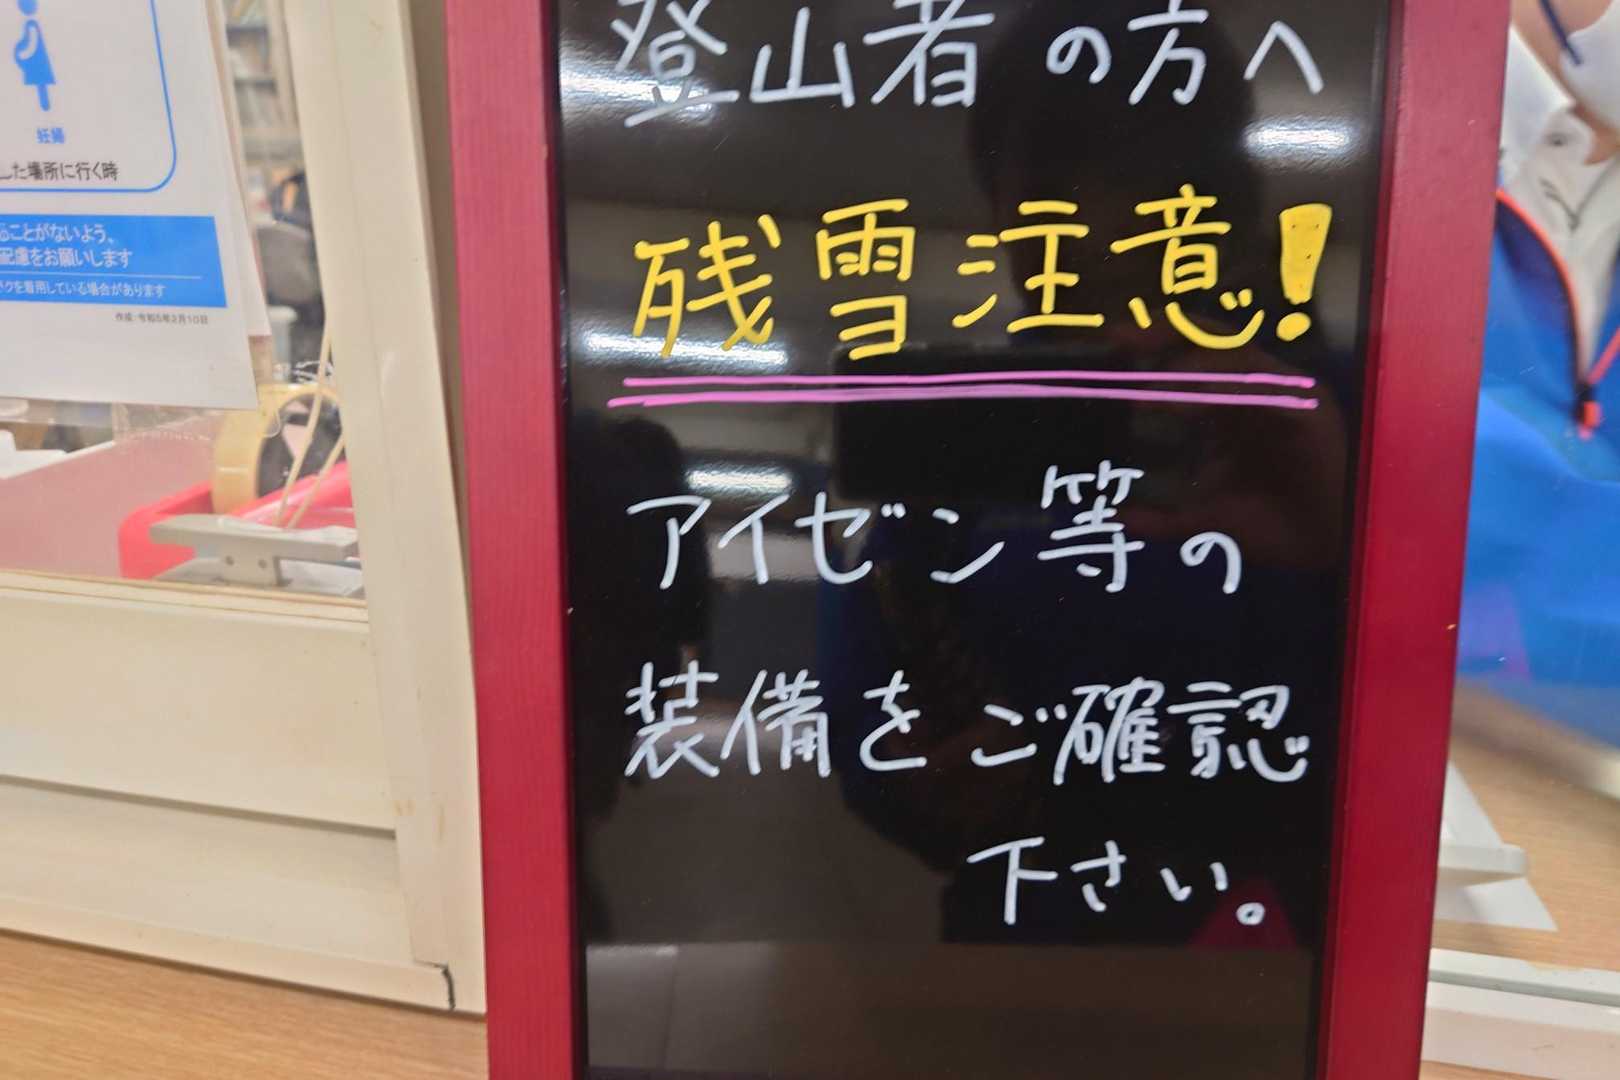 妊婦
した場所に行く時
ことがないよう、
配慮をお願いします
クを着用している場合があります
作成：令和5年2月10日
登山者の方へ
残雪注意!
アイゼン等の
装備をご確認
下さい。